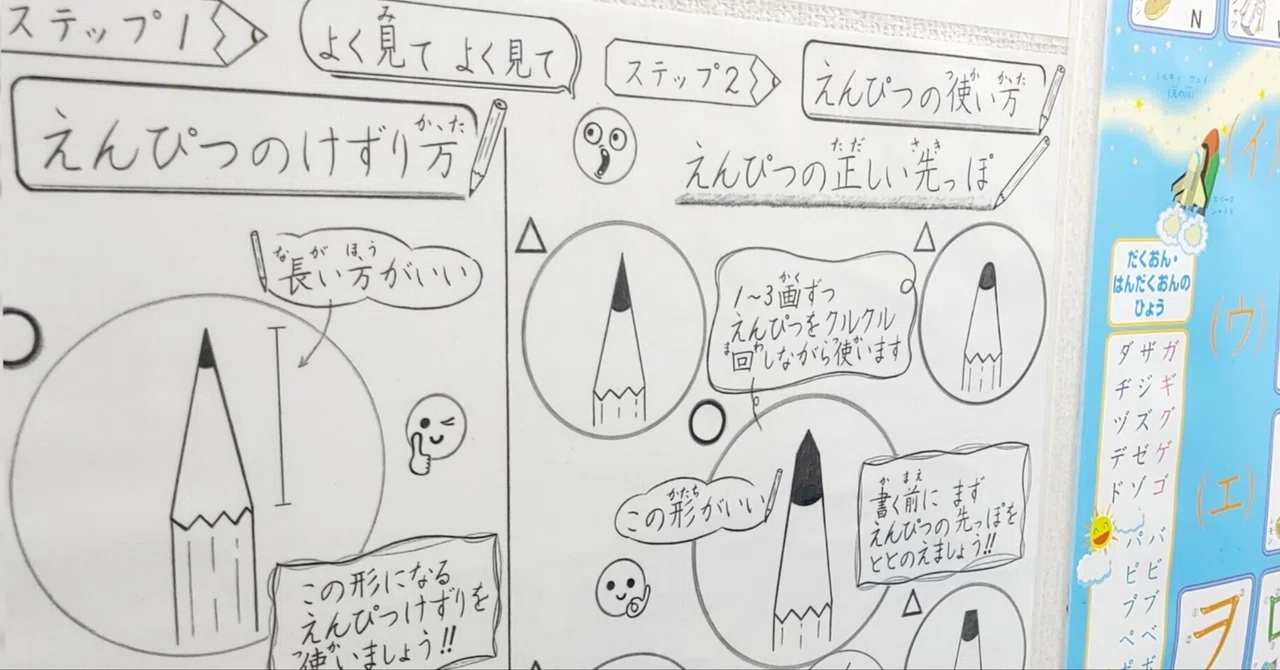 ステップ1
よく見て よく見て
えんぴつのけずり方
長い方がいい
この形になる
えんぴつけずりを
使いましょう!!
ステップ2
えんぴつの使い方
えんぴつの正しい先っぽ
1〜3画ずつ
えんぴつをクルクル
回しながら使います
この形がいい
書く前に まず
えんぴつの先っぽを
ととのえましょう!!
N
だくおん・
はんだくおんの
ひょう
ダ ザ ガ
ヂ ジ ギ
ヅ ズ グ
デ ゼ ゲ
ド ゾ ゴ
パ バ
ピ ビ
プ ブ
ペ ベ
(イ)
(ウ)
(エ)
ヲ